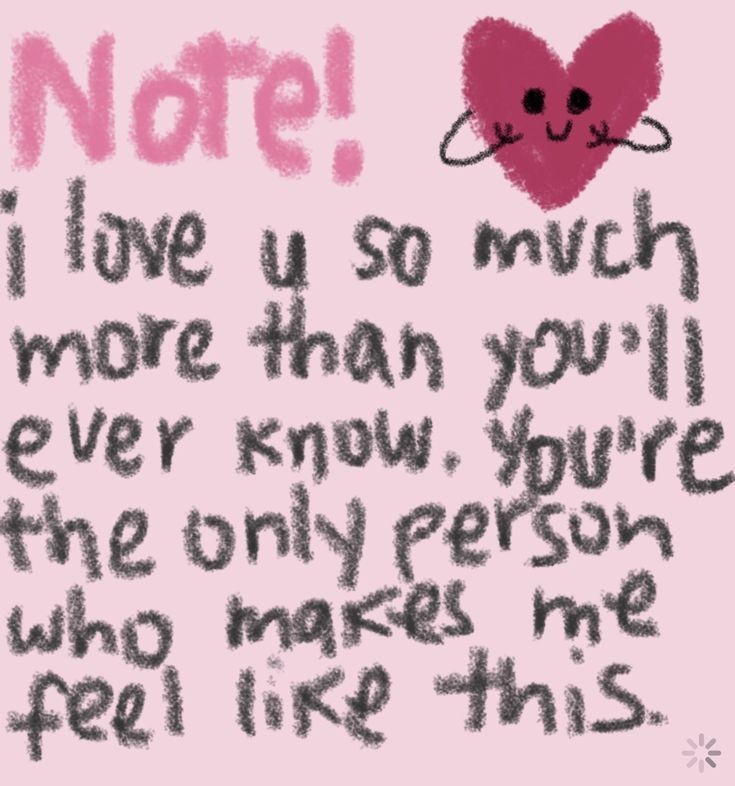 Note!
i love u so much
more than you'll
ever know. you're
the only person
who makes me
feel like this.